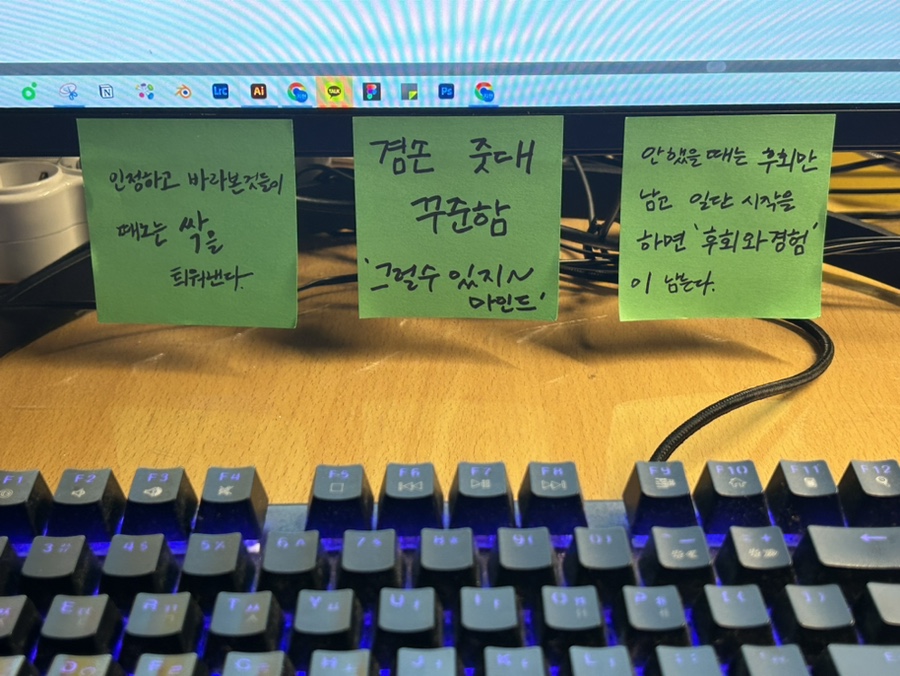 인정하고 바라본것들이
때로는 싹을
틔워낸다.
겸손 줏대
꾸준함
'그럴수있지~
마인드'
안했을때는 후회만
남고 일단 시작을
하면 '후회와경험'
이 남는다.
LrC Ai TALK Ps
F1 F2 F3 F4 F5 F6 F7 F8 F9 F10 F11 F12
3 # 4 $ 5 % 6 ^ 7 8 9 ( 0 ) - +
E R T Y U I O P